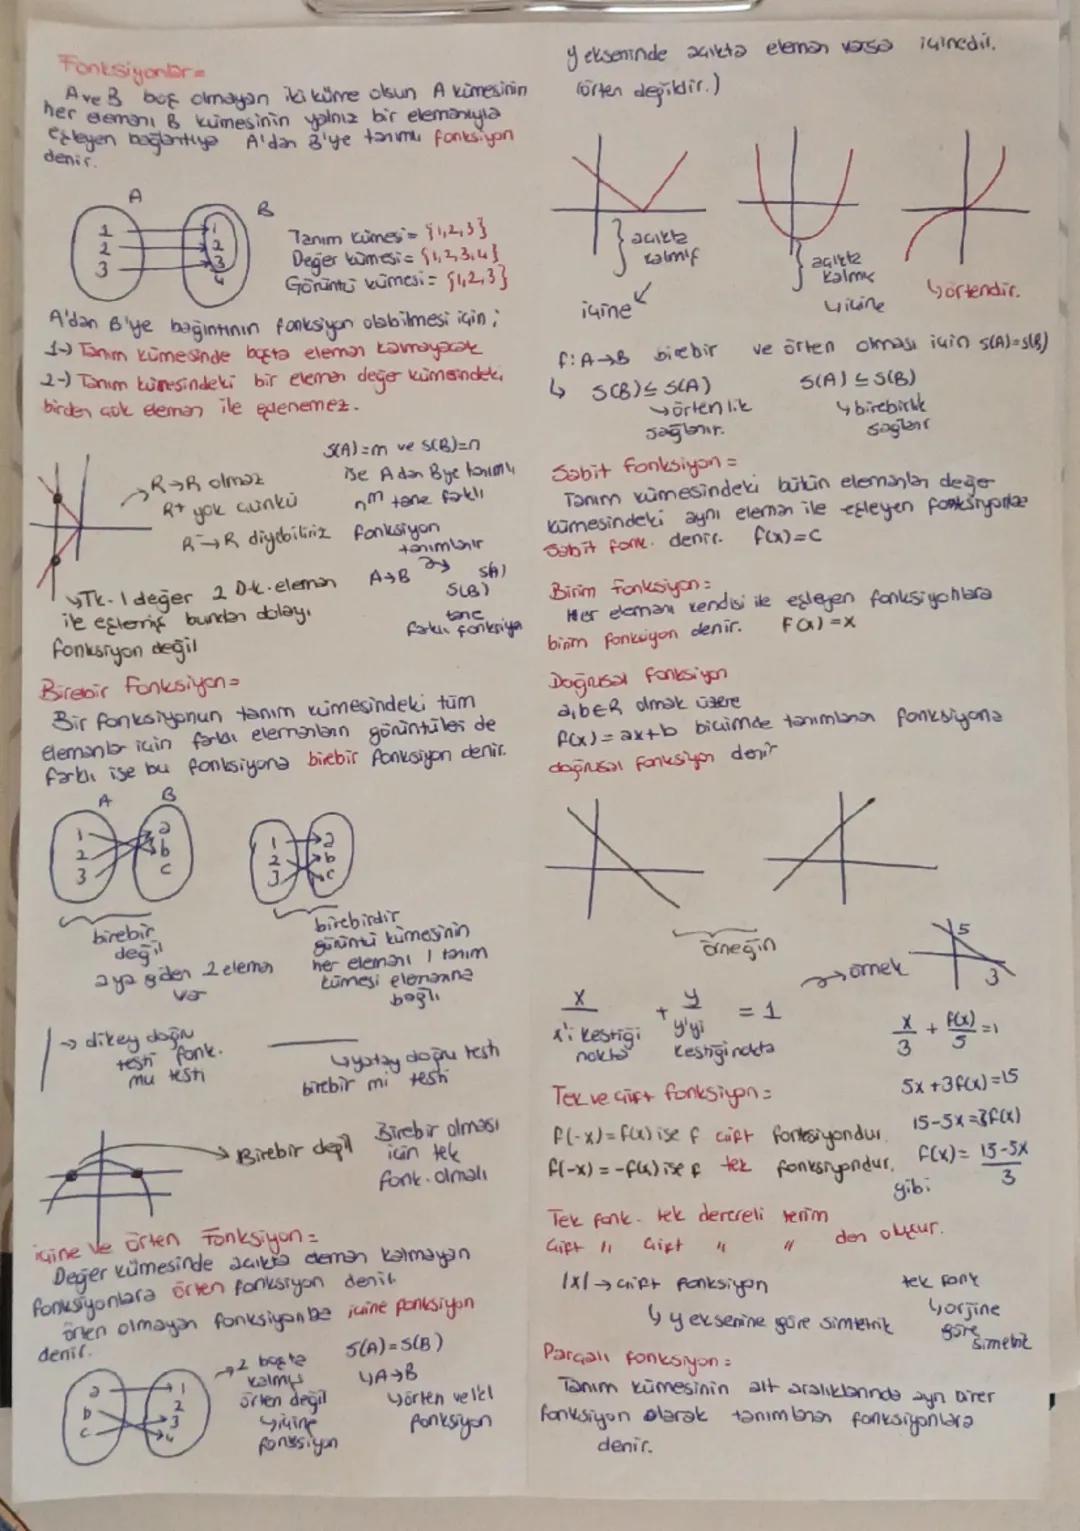 Fonksiyonlar=
A ve B boş olmayan iki küme olsun A kümesinin
her elemanı B kümesinin yalnız bir elemanıyla
eşleyen bağlantıya A'dan B'ye tanımlı fonksiyon
denir.
A
B
1
2
3
1
2
3
4
Tanım kümesi= {1,2,3}
Değer kümesi= {1,2,3,4}
Görüntü kümesi= {1,2,3}
A'dan B'ye bağıntının fonksiyon olabilmesi için;
1-) Tanım kümesinde boşta eleman kalmayacak
2-) Tanım kümesindeki bir eleman değer kümesindeki
birden çok eleman ile eşlenemez.
R→R olmaz
R+ yok çünkü
R-→R diyebiliriz
Tk. 1 değer 2 D.k. eleman
ile eşlemiş bundan dolayı
fonksiyon değil
s(A)=m ve s(B)=n
ise A dan B ye tanımlı
n^m tane farklı
fonksiyon
tanımlanır
A→B
s(A)
s(B)
tane
farklı fonksiyo
Birebir Fonksiyon=
Bir fonksiyonun tanım kümesindeki tüm
elemanlar için farklı elemanların görüntüleri de
farklı ise bu fonksiyona birebir fonksiyon denir.
A
B
1
2
3
a
b
c
1
2
3
a
b
c
birebir
değil
a ya giden 2 eleman
var
birebirdir
görüntü kümesinin
her elemanı 1 tanım
kümesi elemanına
bağlı
→ dikey doğru
testi fonk.
mu testi
↳ yatay doğru testi
birebir mi testi
→ Birebir değil
Birebir olması
için tek
fonk. olmalı
içine ve örten Fonksiyon=
Değer kümesinde açıkta eleman kalmayan
fonksiyonlara örten fonksiyon denir
örten olmayan fonksiyonlara içine fonksiyon
denir.
a
b
c
1
2
3
4
→ 2 boşta
kalmış
örten değil
↳ içine
fonksiyon
s(A)=s(B)
↳ A→B
↳ örten ve 1e1
fonksiyon
y ekseninde açıkta eleman varsa içinedir.
(örten değildir.)
açıkta
kalmış
içine
açıkta
kalmış
↳ içine
↳ örtendir.
f: A→B birebir ve örten olması için s(A)=s(B)
↳ s(B)≤s(A)
↳ örtenlik
sağlanır.
s(A)≤s(B)
↳ birebirlik
sağlanır
Sabit fonksiyon=
Tanım kümesindeki bütün elemanları değer
kümesindeki aynı eleman ile eşleyen fonksiyonlara
sabit fonk. denir. f(x)=c
Birim Fonksiyon=
Her elemanı kendisi ile eşleyen fonksiyonlara
birim fonksiyon denir. F(x)=x
Doğrusal fonksiyon
a,b∈R olmak üzere
f(x)=ax+b biçimde tanımlanan fonksiyona
doğrusal fonksiyon denir
örneğin
→ örnek
5
3
x / x'i kestiği nokta + y / y'yi kestiği nokta = 1
x/3 + f(x)/5 =1
5x+3f(x)=15
15-5x=3f(x)
f(x)= 15-5x / 3
gibi
Tek ve Çift fonksiyon=
f(-x)=f(x) ise f çift fonksiyondur.
f(-x)=-f(x) ise f tek fonksiyondur.
Tek fonk. tek dereceli terim
Çift " çift " "
den oluşur.
|x| → çift fonksiyon
↳ y eksenine göre simetrik
tek fonk
↳ orjine
göre
simetrik
Parçalı fonksiyon:
Tanım kümesinin alt aralıklarında ayrı birer
fonksiyon olarak tanımlanan fonksiyonlara
denir.